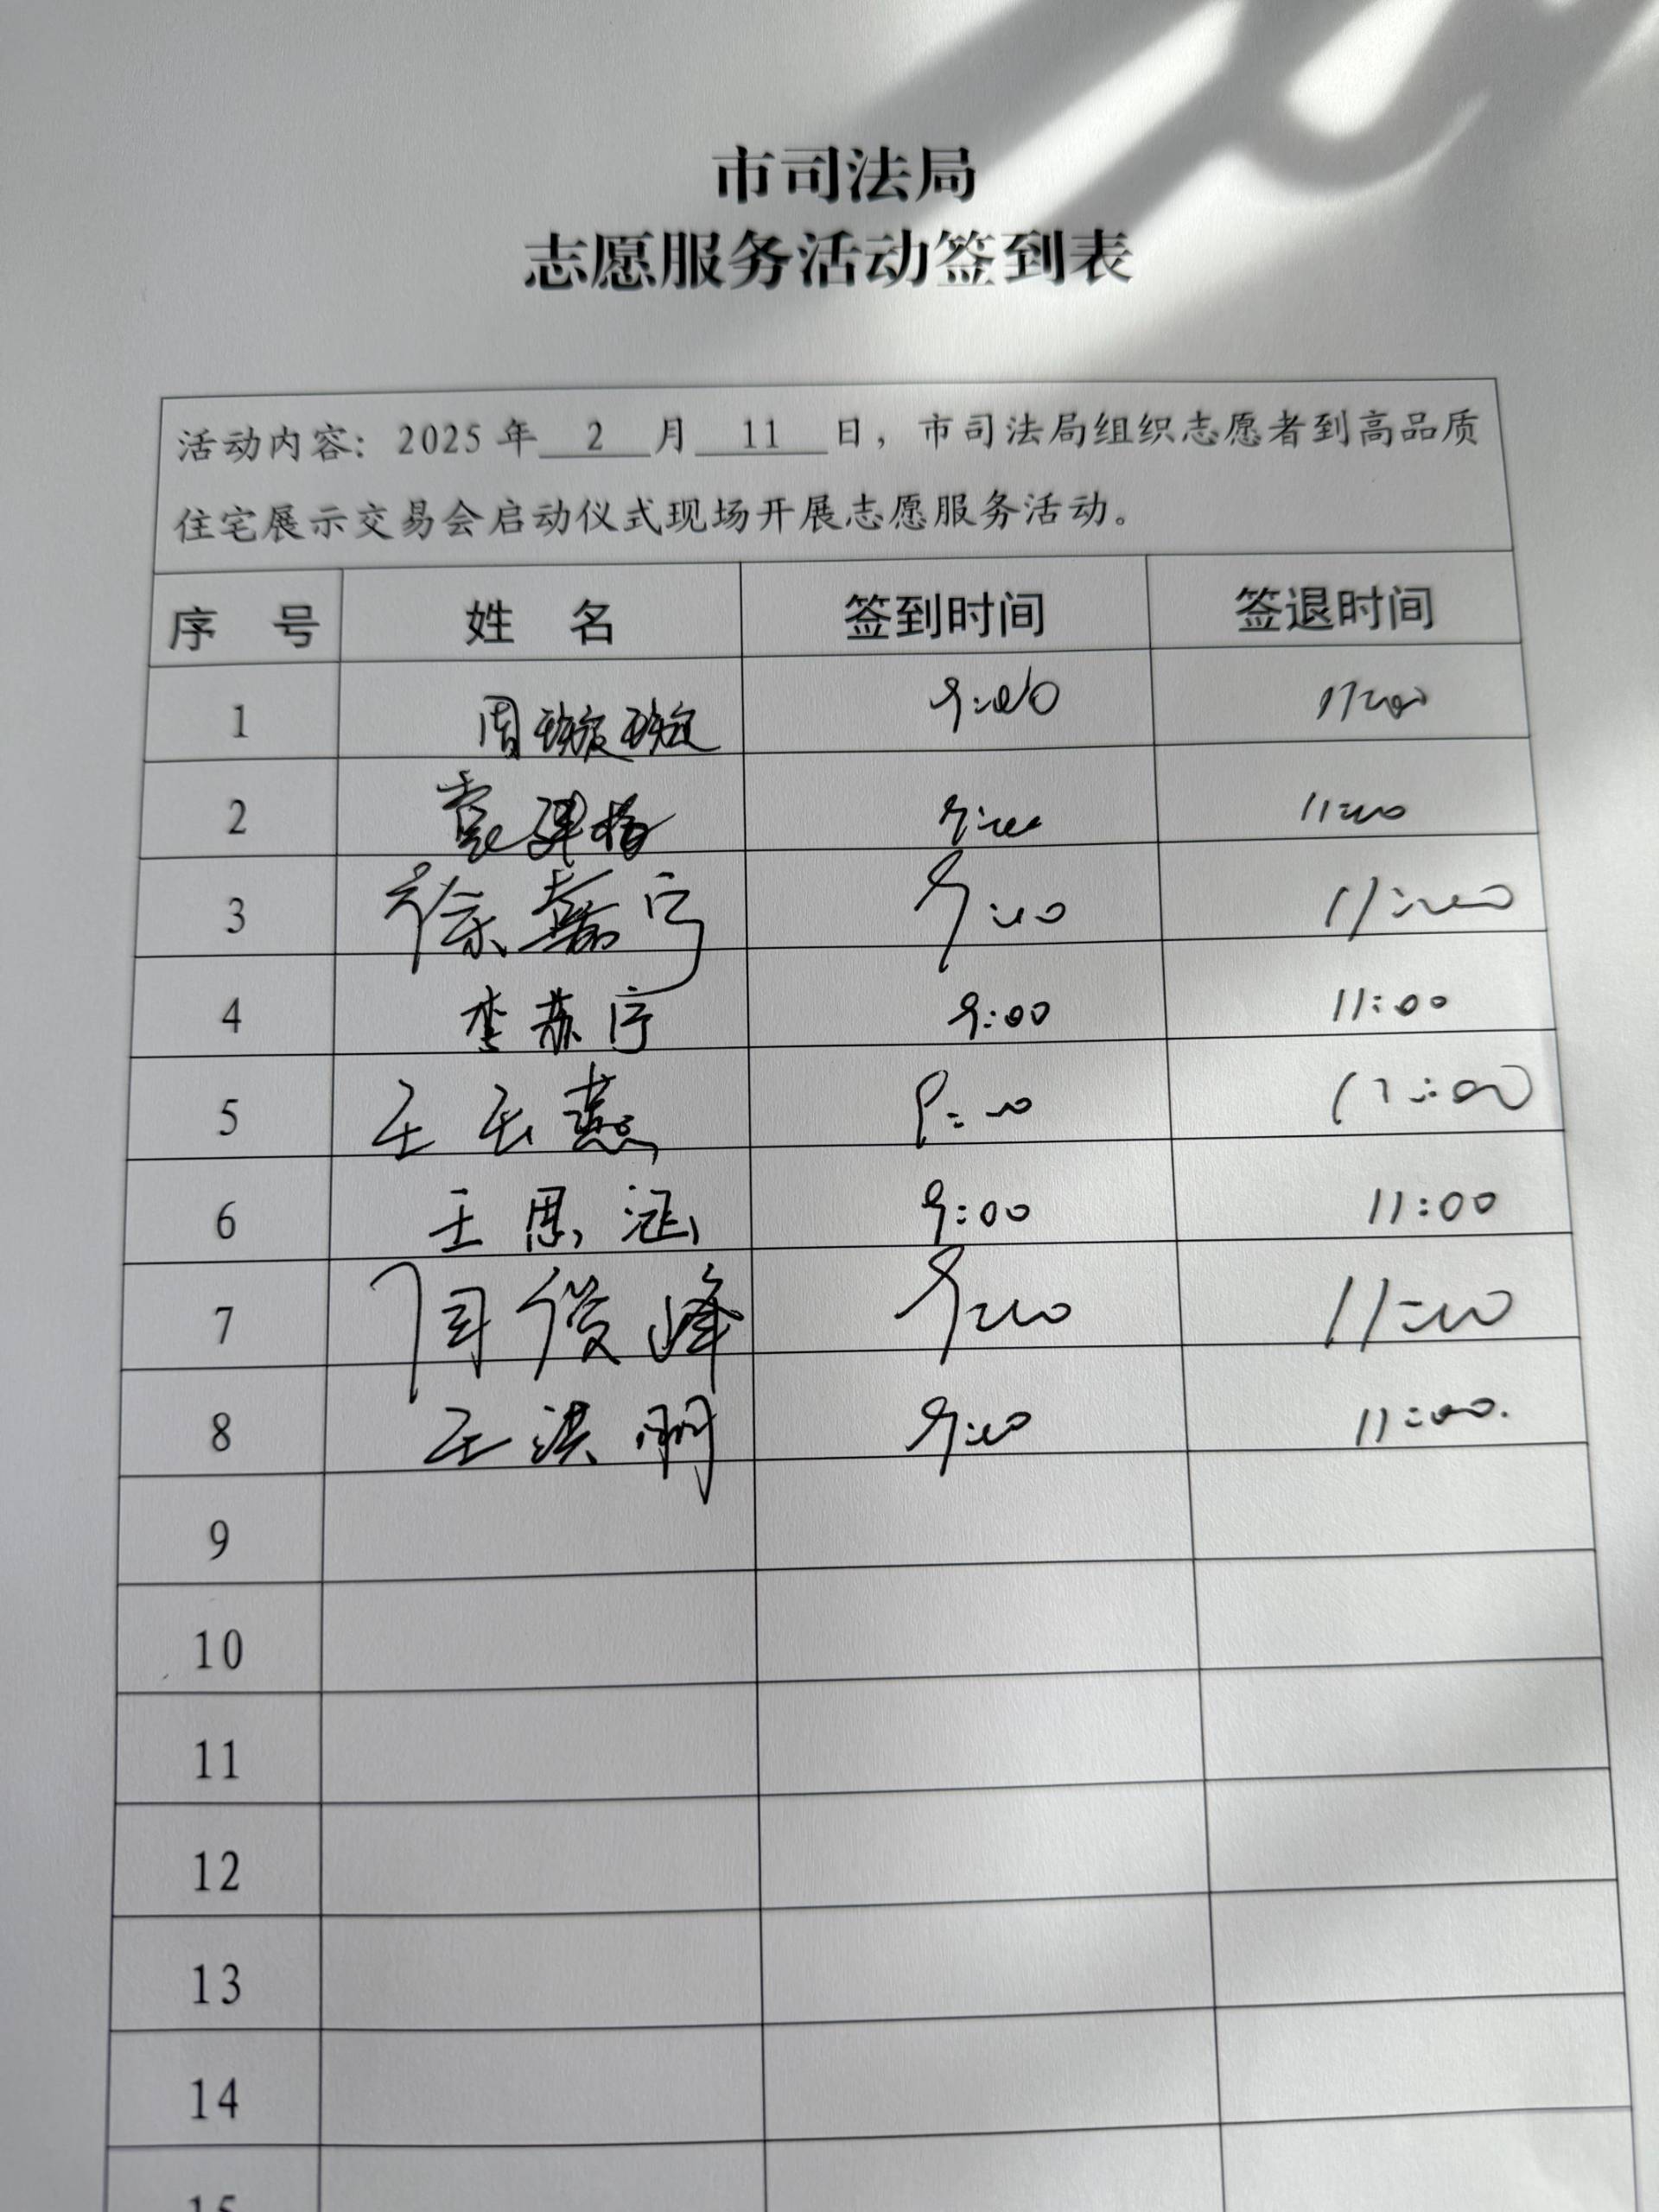 市司法局
志愿服务活动签到表
活动内容：2025年 2 月 11 日，市司法局组织志愿者到高品质
住宅展示交易会启动仪式现场开展志愿服务活动。
序 号 姓 名 签到时间 签退时间
1 周璇璇 9:00 11:00
2 9:00 11:00
3 徐嘉宁 9:00 11:00
4 李苏宁 9:00 11:00
5 王玉燕 9:00 11:00
6 王思涵 9:00 11:00
7 周俊峰 9:00 11:00
8 王洪明 9:00 11:00.
9
10
11
12
13
14
15